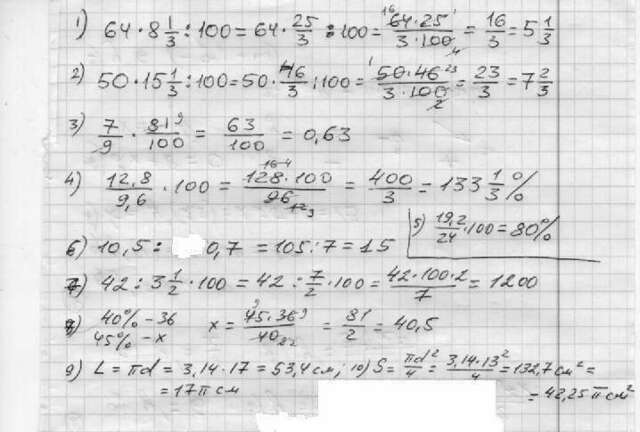 1) 64 · 8 1/3 : 100 = 64 · 25/3 : 100 = 64 · 25 / 3 · 100 = 16/3 = 5 1/3
2) 50 · 15 1/3 : 100 = 50 · 46/3 : 100 = 50 · 46 / 3 · 100 = 23/3 = 7 2/3
3) 7/9 · 81/100 = 63/100 = 0,63
4) 12,8/9,6 · 100 = 128 · 100 / 96 = 400/3 = 133 1/3 %
5) 19,2/24 · 100 = 80%
6) 10,5 : 0,7 = 105 : 7 = 15
7) 42 : 3 1/2 · 100 = 42 : 7/2 · 100 = 42 · 100 · 2 / 7 = 1200
40% – 36
45% – x
x = 45 · 36 / 40 = 81/2 = 40,5
9) L = πd = 3,14 · 17 = 53,4 см; 10) S = πd²/4 = 3,14 · 13²/4 = 132,7 см² =
= 17π см
= 42,25 π см²